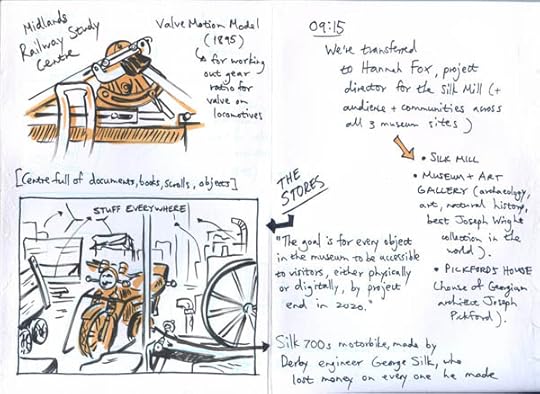 Midlands
Railway Study
Centre
Valve Motion Model
(1895)
↳ for working
out gear
ratio for
valve on
locomotives
[Centre full of documents, books, scrolls, objects]
STUFF EVERYWHERE
THE
STORES
09:15
We're transferred
to Hannah Fox, project
director for the Silk Mill (+
audience + communities across
all 3 museum sites)
• SILK MILL
• MUSEUM + ART
GALLERY (archaeology,
art, natural history,
best Joseph Wright
collection in the
world).
• PICKFORDS HOUSE
(house of Georgian
architect Joseph
Pickford).
"The goal is for every object
in the museum to be accessible
to visitors, either physically
or digitally, by project
end in 2020."
Silk 700s motorbike, made by
Derby engineer George Silk, who
lost money on every one he made